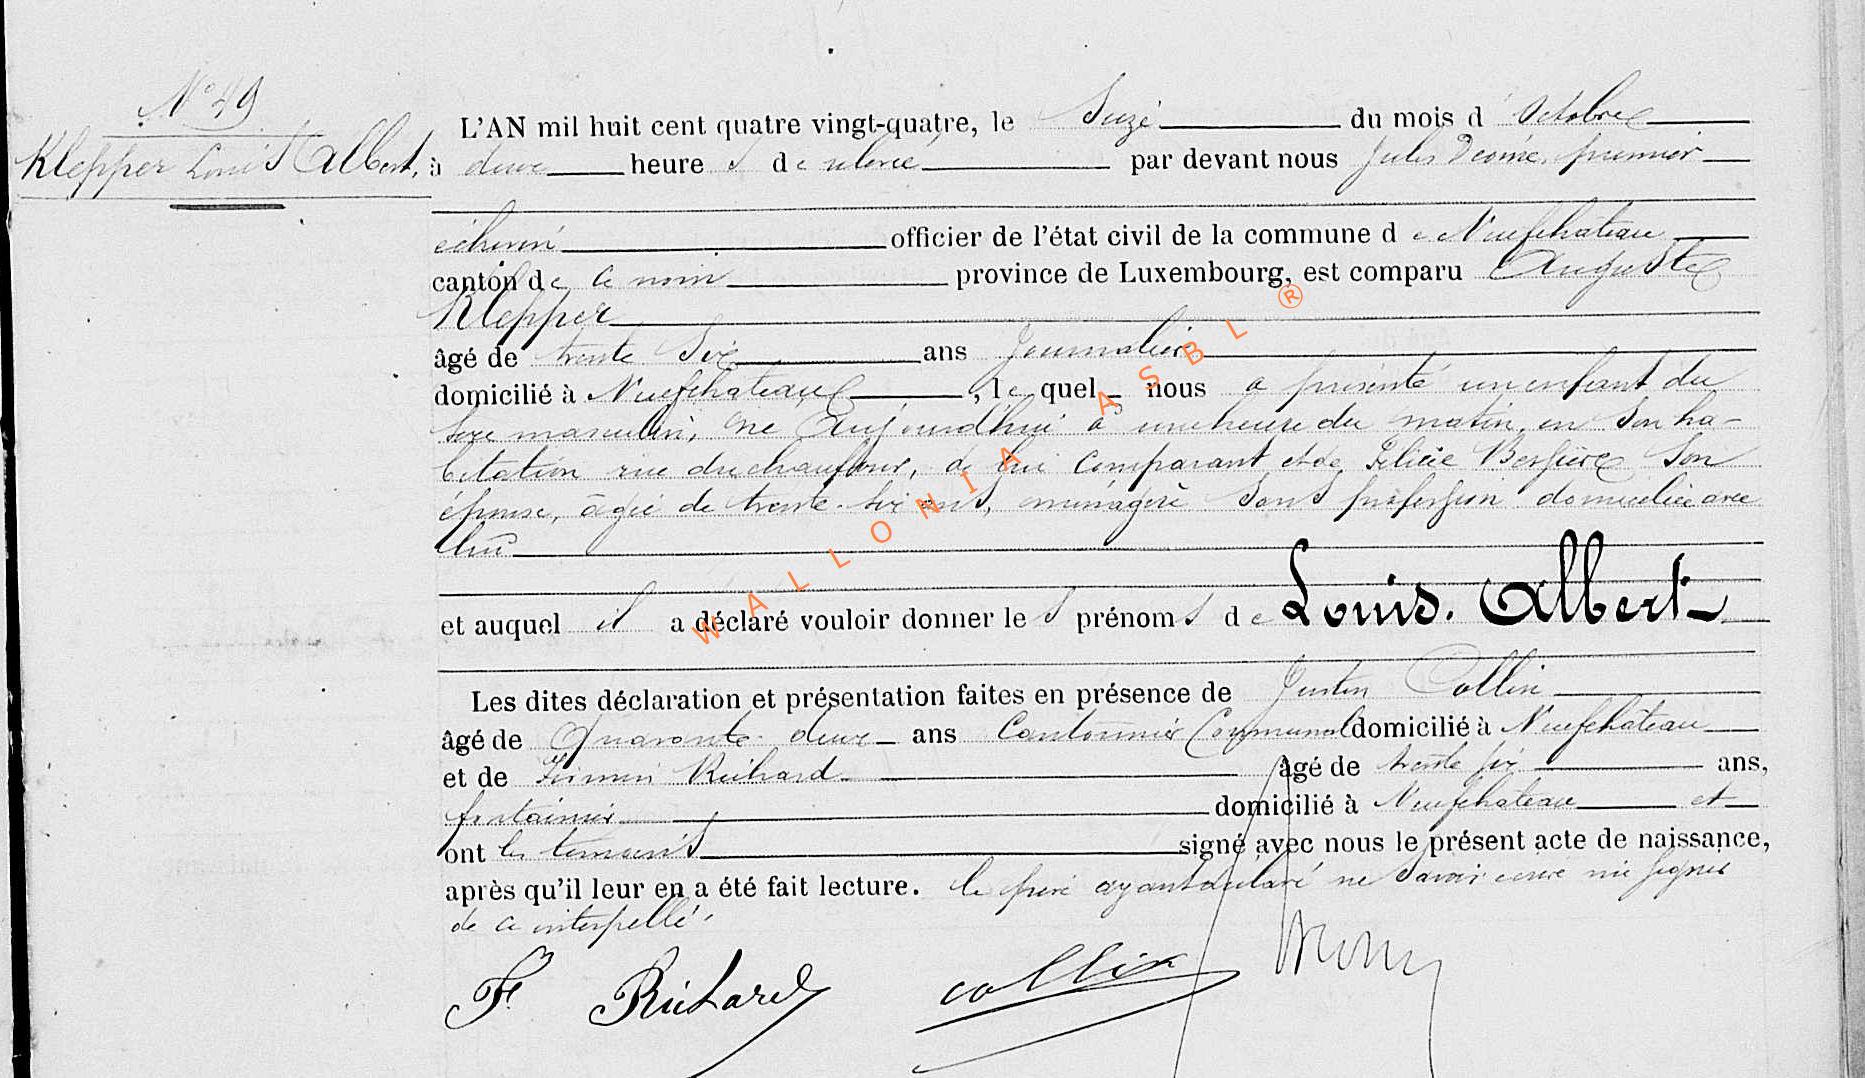 N° 49
Klepper Louis Albert.
L'AN mil huit cent quatre vingt-quatre, le Seize du mois d'Octobre
à deux heures de relevée par devant nous Jules premier
échevin officier de l'état civil de la commune de Neufchateau
canton de ce nom province de Luxembourg, est comparu Auguste
Klepper
âgé de trente Six ans Journalier
domicilié à Neufchateau, le quel nous a présenté un enfant du
Sexe masculin, né Aujourdhui à une heure du matin, en Son ha-
bitation rue du chaufour, de lui Comparant et de Félicie Son
épouse, âgée de trente-six ans, ménagère Sans profession domiciliée avec
lui
et auquel il a déclaré vouloir donner les prénoms de Louis. Albert
Les dites déclaration et présentation faites en présence de Justin Collin
âgé de Quarante deux ans Cantonnier Communal domicilié à Neufchâteau
et de Firmin Richard âgé de trente six ans,
fontainier domicilié à Neufchateau et
ont les témoins signé avec nous le présent acte de naissance,
après qu'il leur en a été fait lecture. le père ayant déclaré ne Savoir écrire ni signer
de ce interpellé.
F. Richard collin
WALLONIA ASBL ®